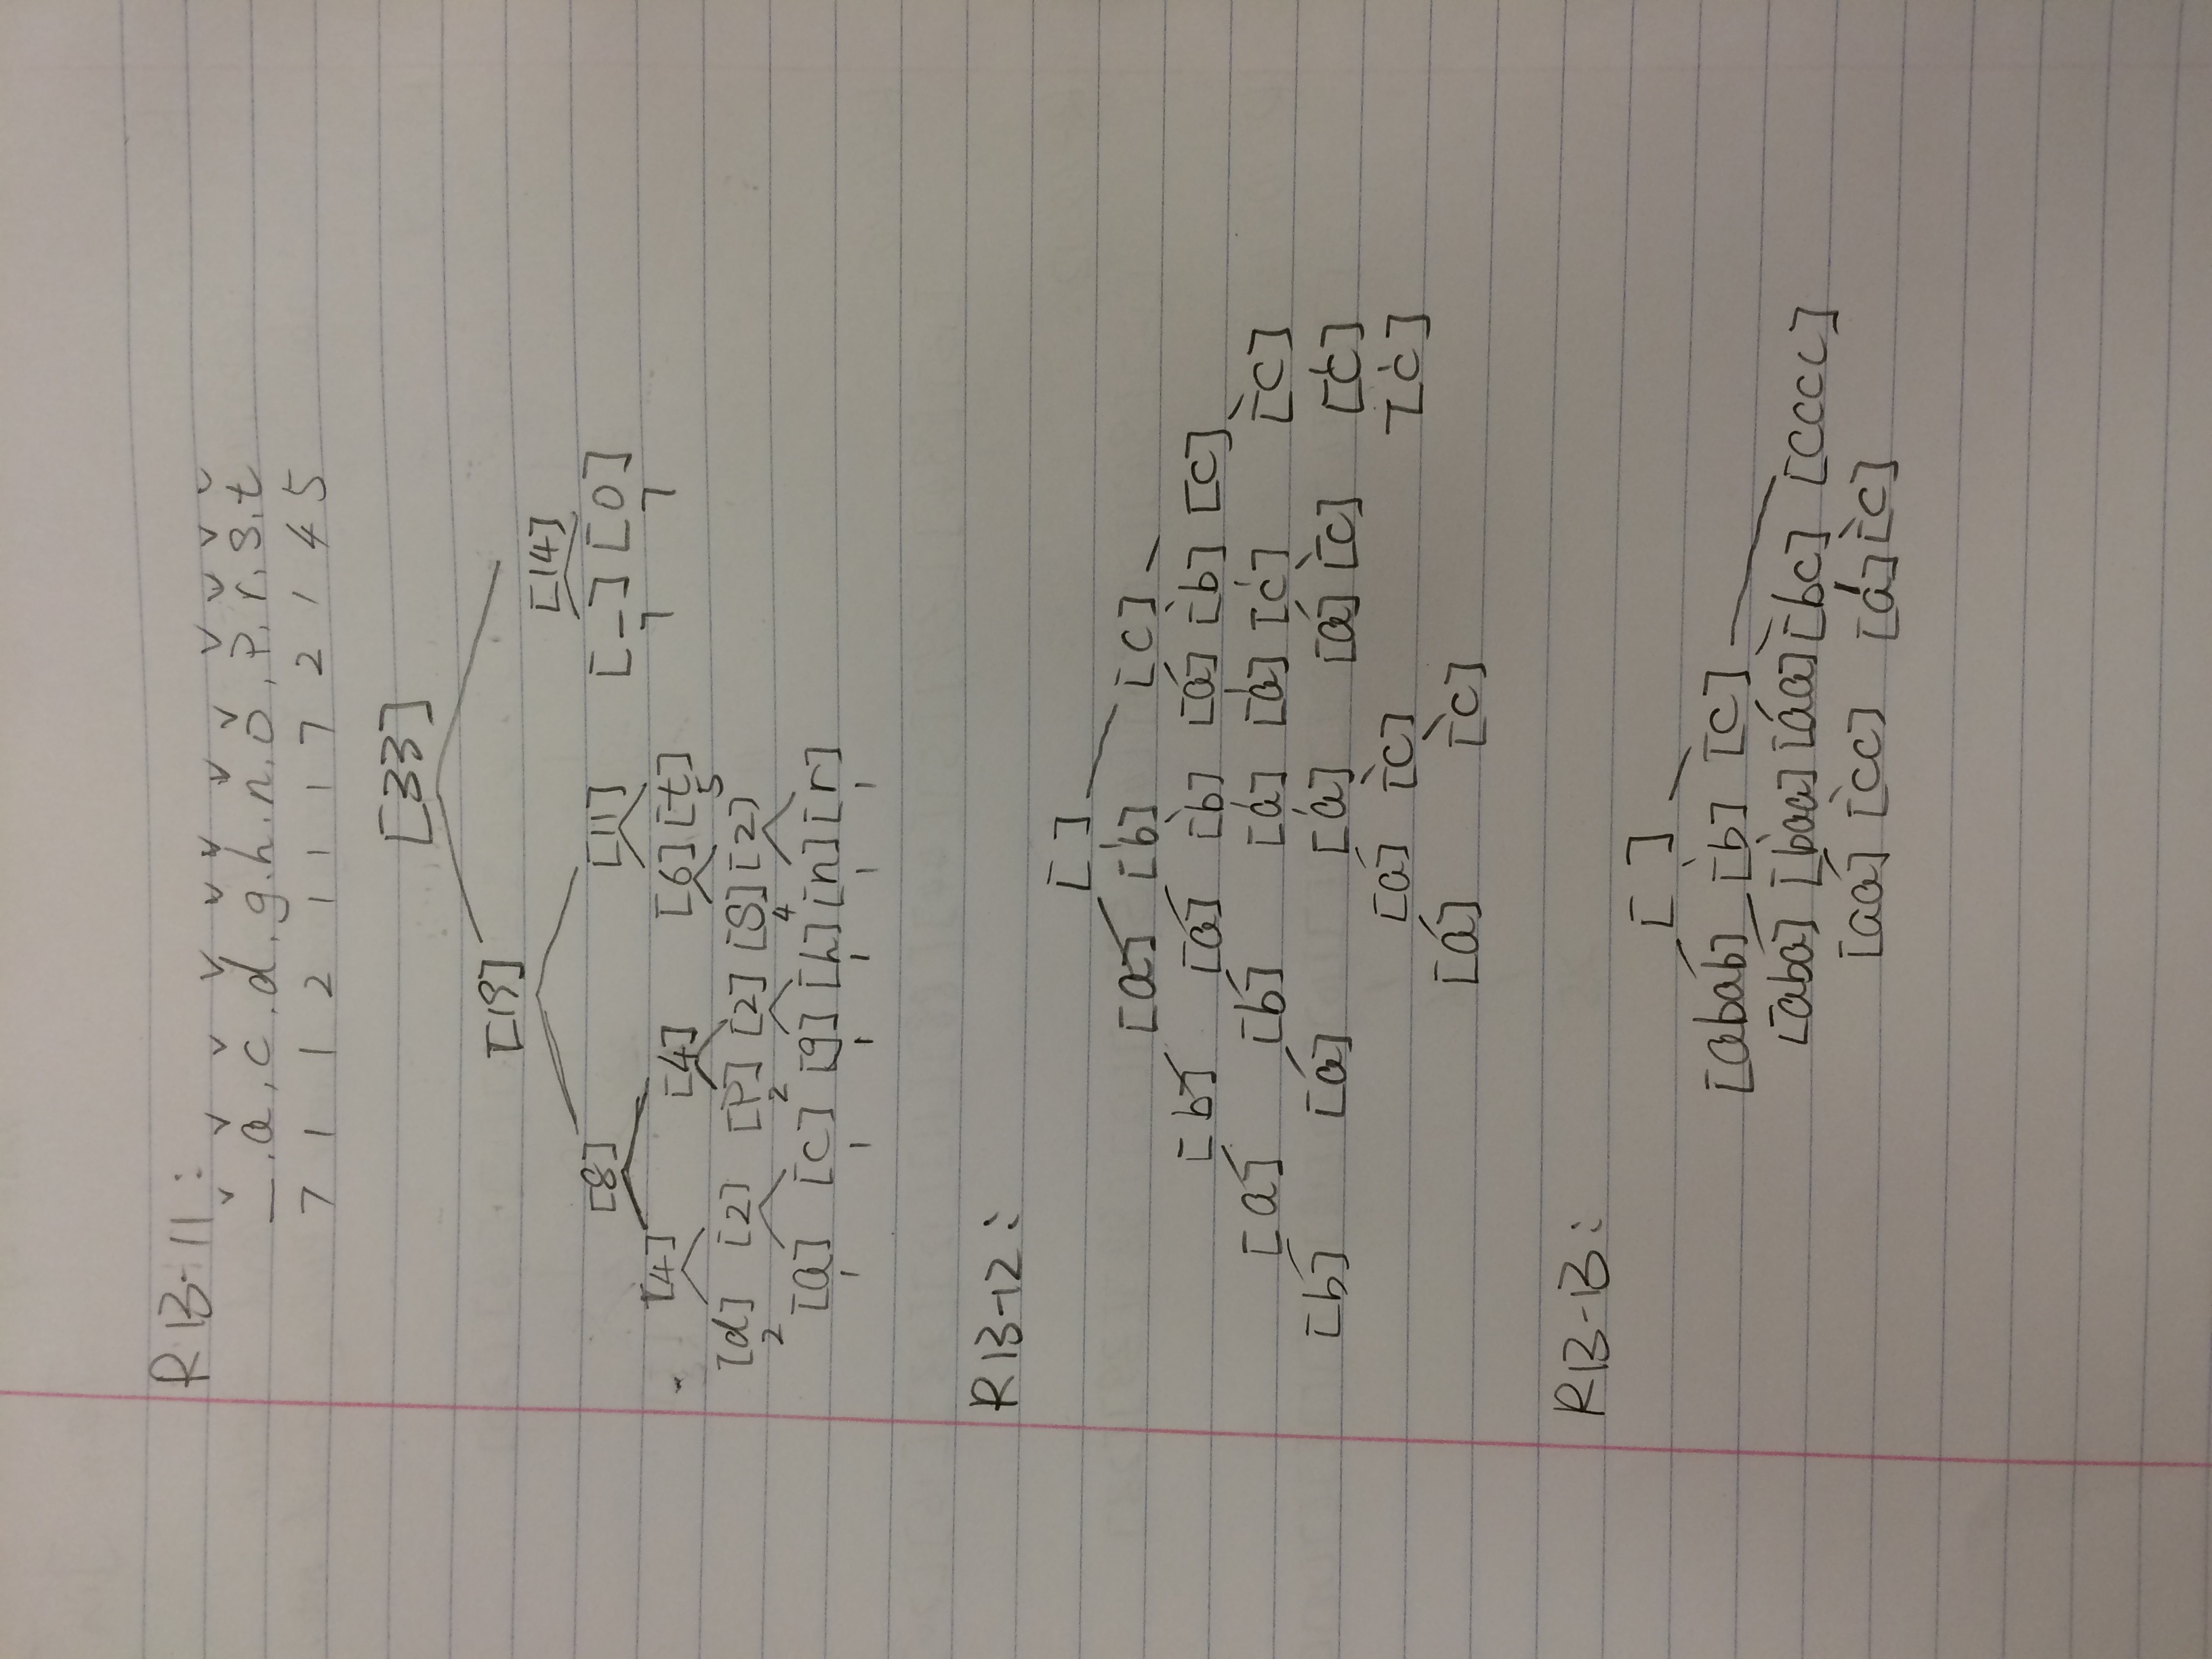 R13-11:
_, a, c, d, g, h, n, o, p, r, s, t
7 1 1 2 1 1 1 7 2 1 4 5
[33]
[19]
[14]
[8] [11] [_] [o]
7 7
[4] [4] [6] [t]
5
[d] [2] [p] [2] [s] [2]
2 2 4
[a] [c] [g] [h] [n] [r]
1 1 1 1 1 1
R13-12:
[ ]
[a] [b] [c]
[b] [a] [b] [a] [b] [c]
[a] [b] [a] [a] [c] [c]
[b] [a] [a] [a] [c] [c]
[a] [c] [c]
[a] [c]
R13-13:
[ ]
[abab] [b] [c]
[aba] [baa] [aa] [bc] [cccc]
[aa] [cc] [a] [c]